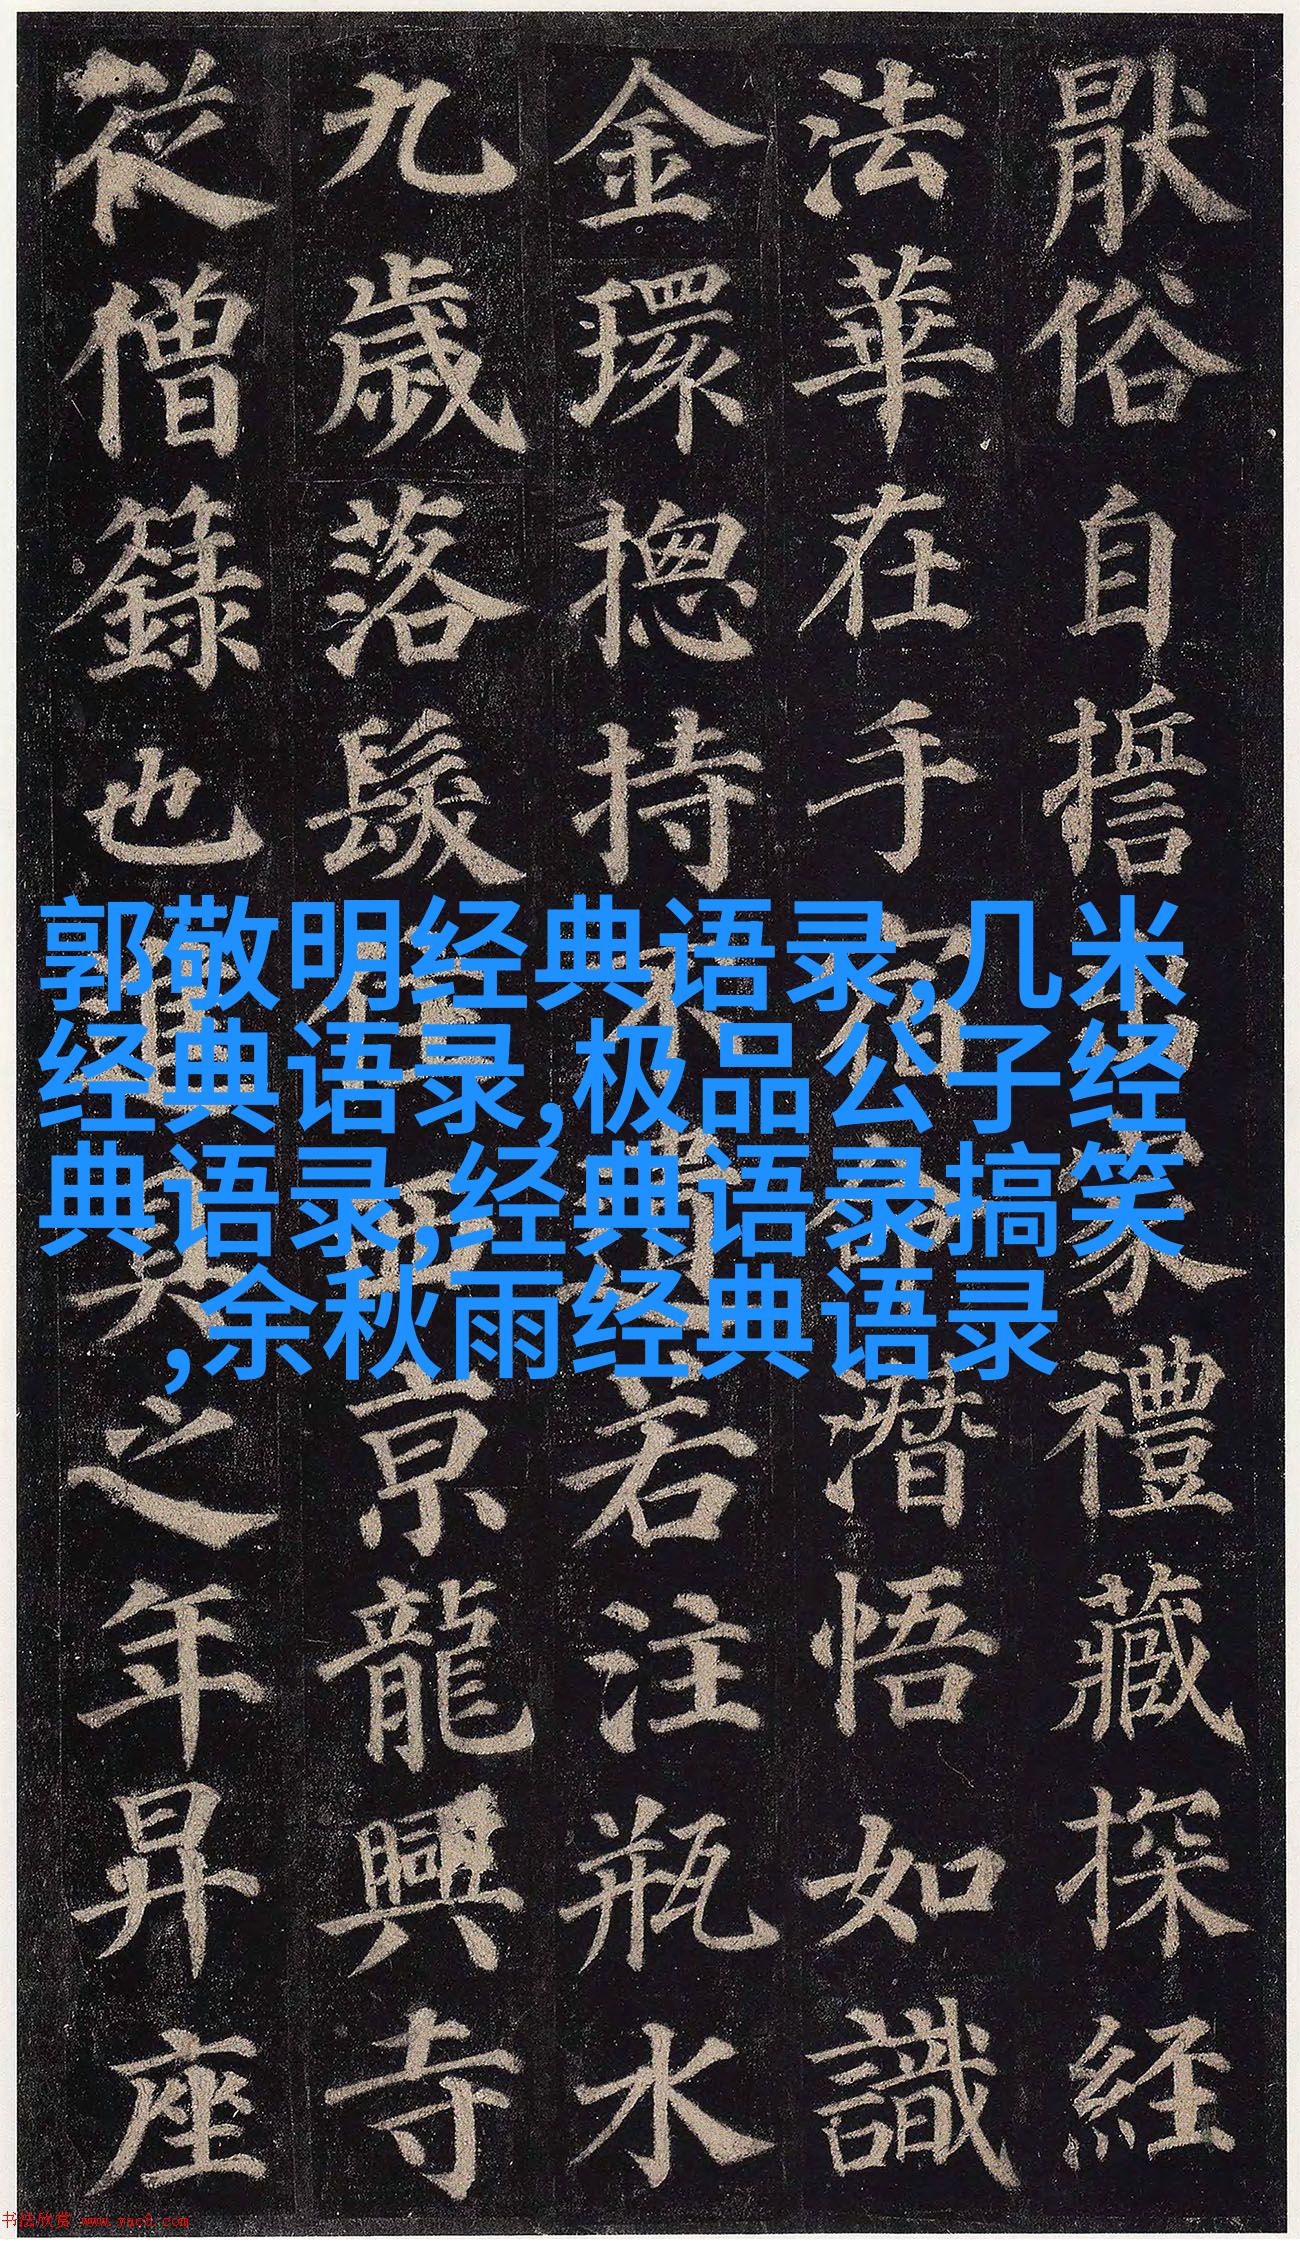 猒俗自誓出家禮藏探經
法華在手宿命潛悟如識
金環揔持不遺若注瓶水
九歲落髮住西京龍興寺
從僧籙也進具之年昇座
郭敬明经典语录,几米
经典语录,极品公子经
典语录,经典语录搞笑
,余秋雨经典语录
书法欣赏 www.yac8.com